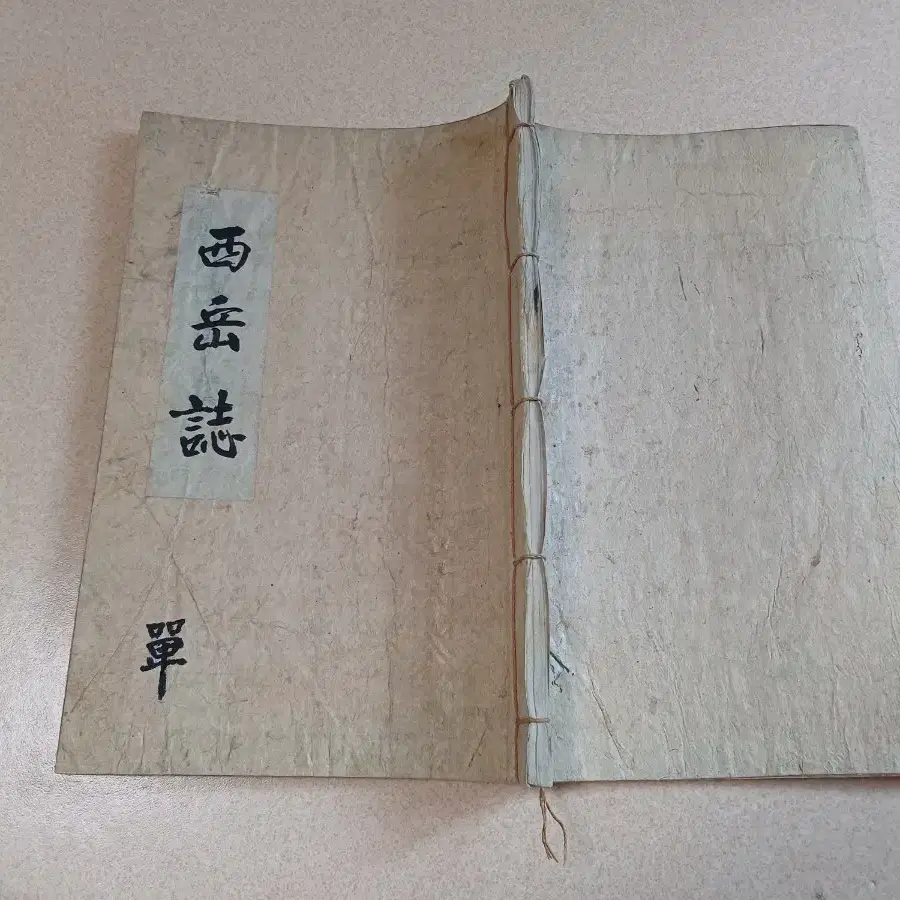 西岳誌
單